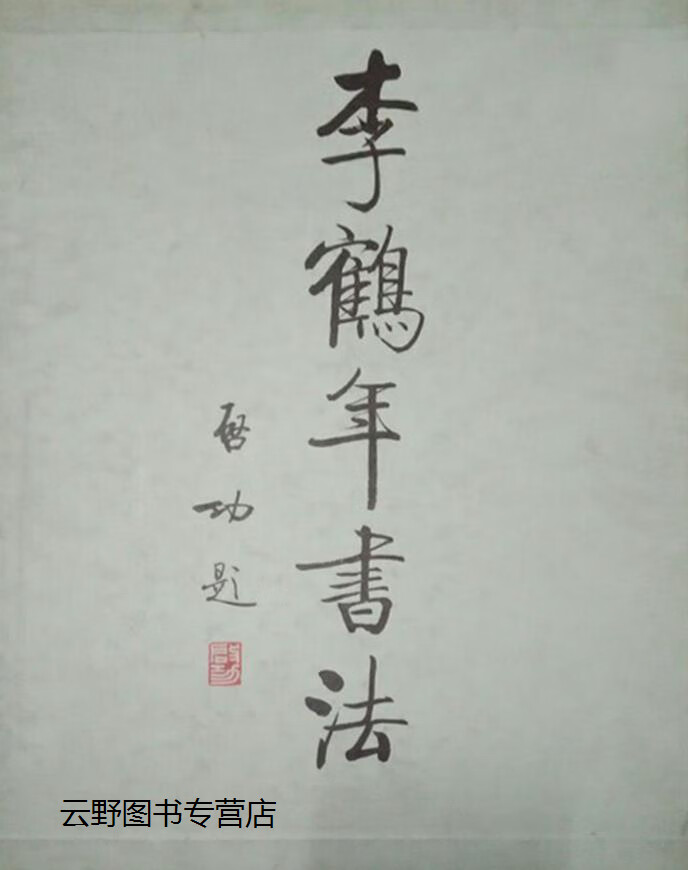 李鶴年書法
启功題
啟功
云野图书专营店